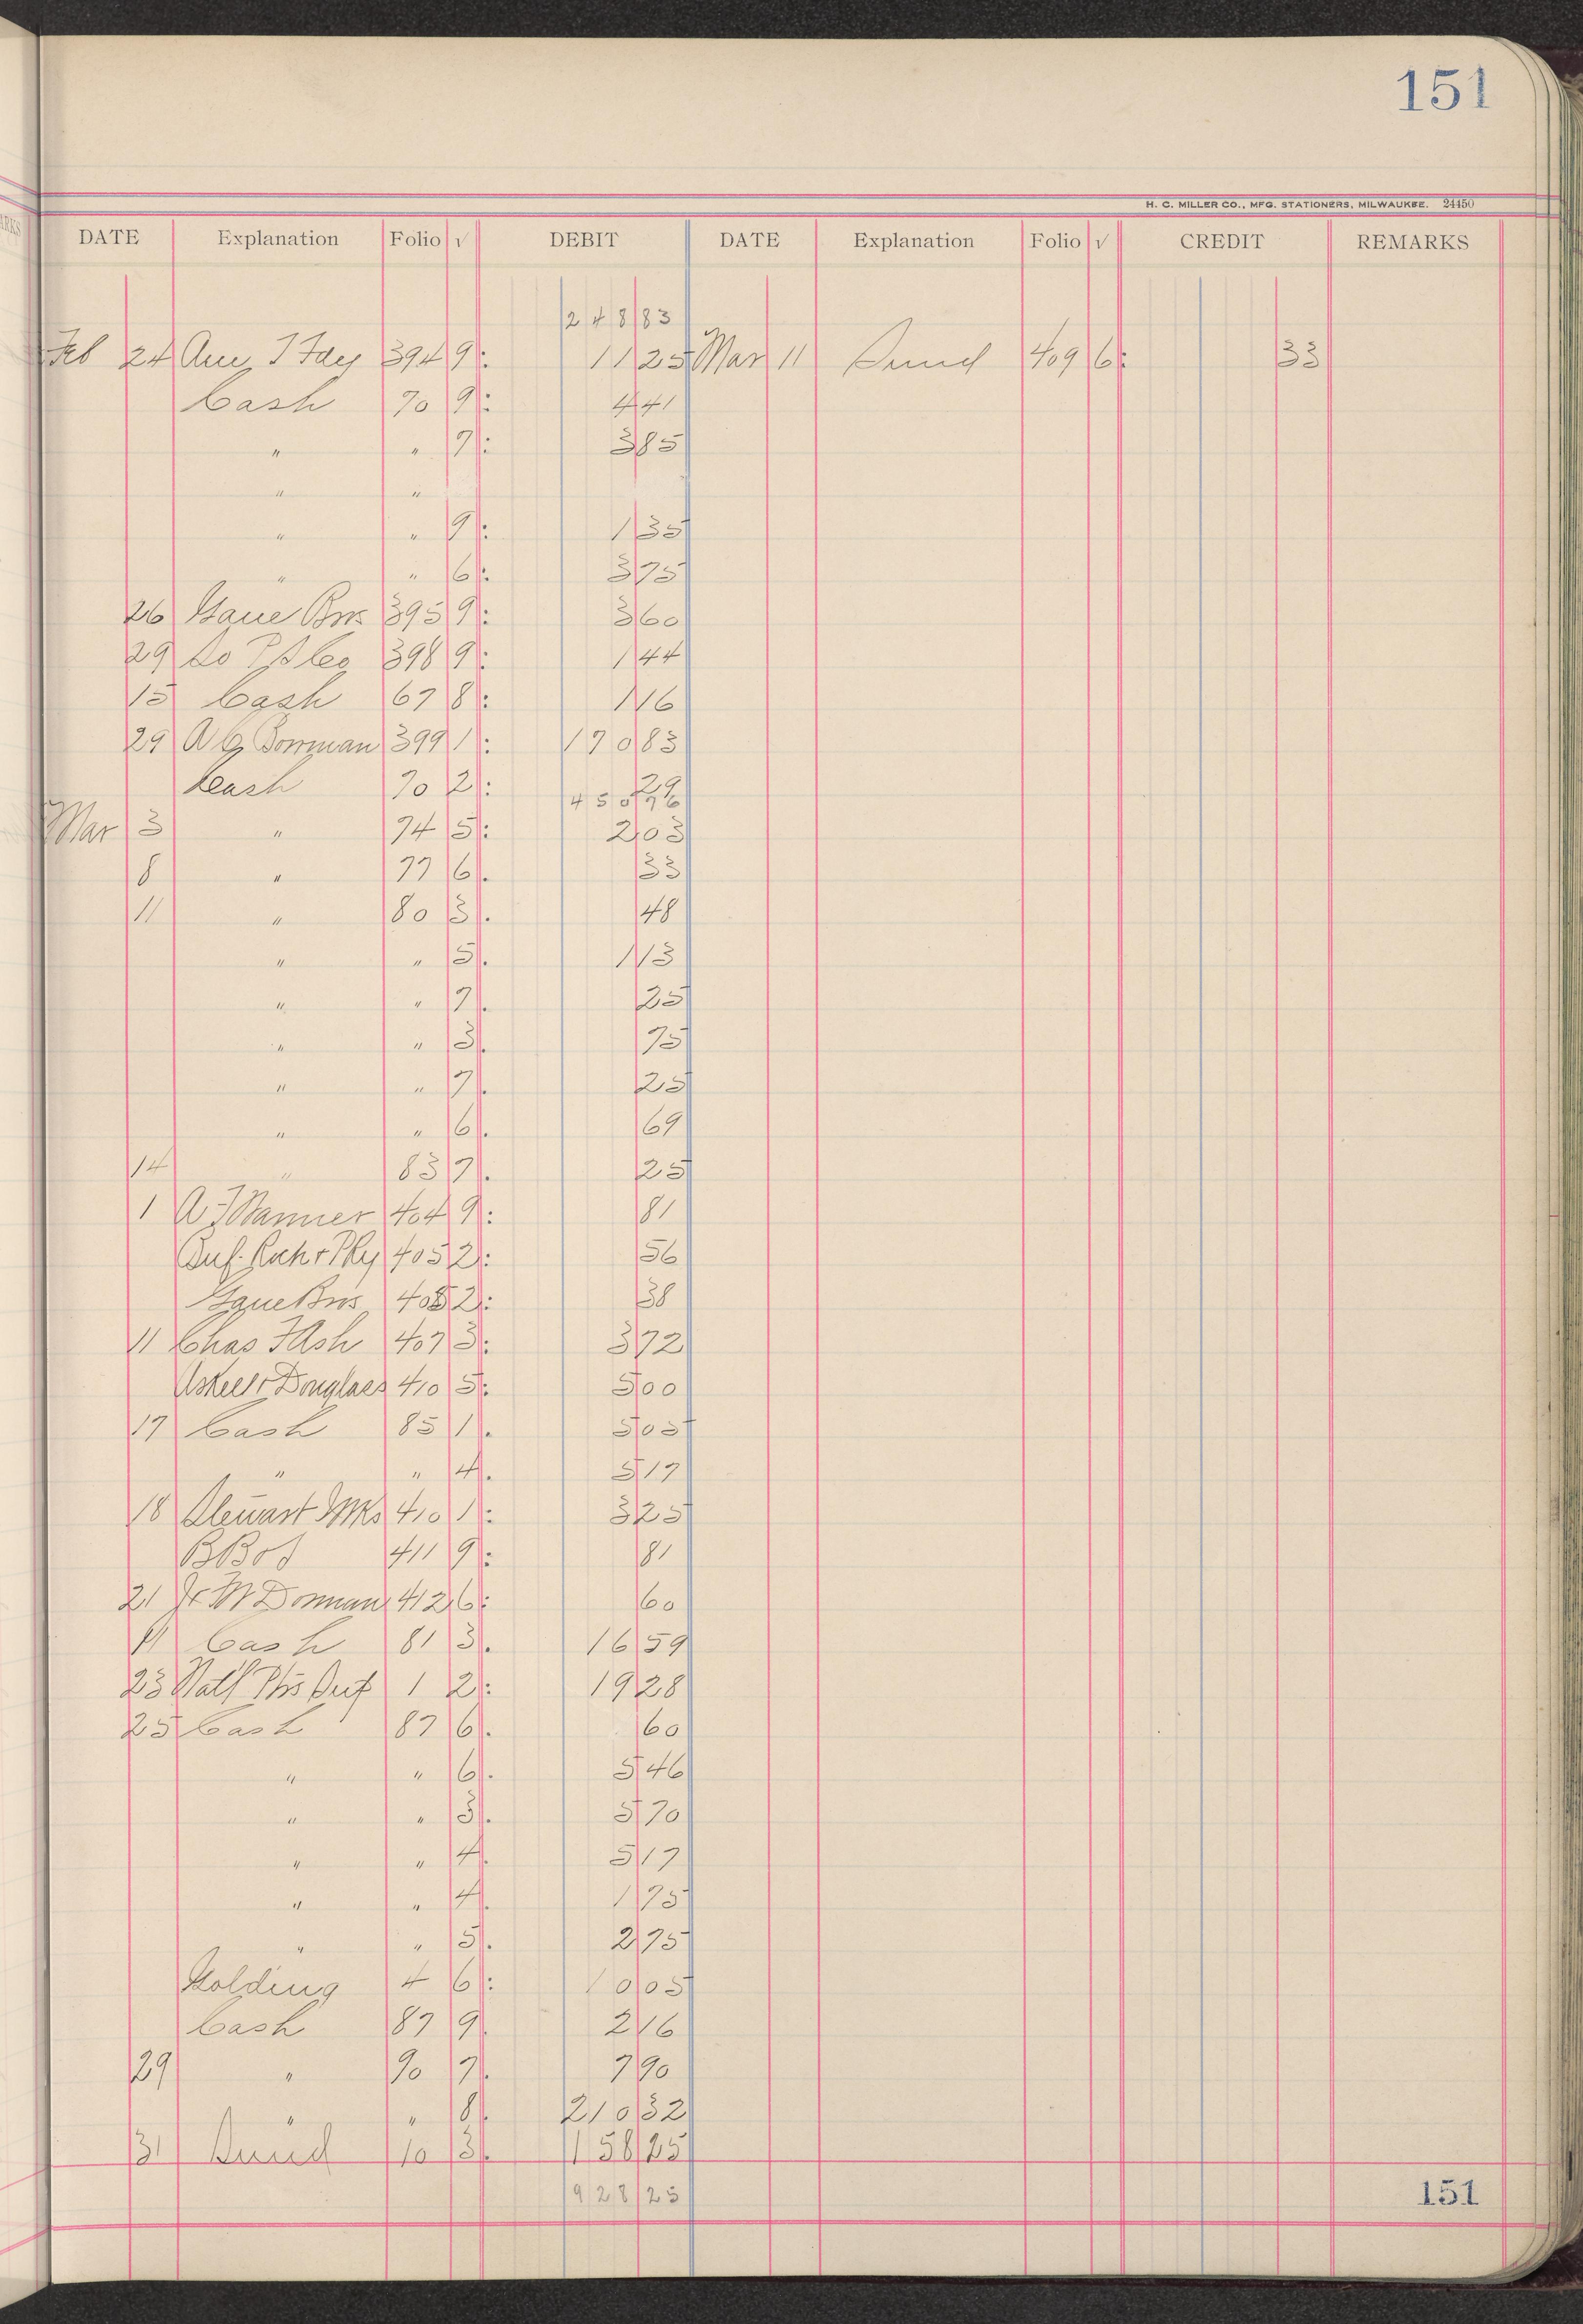 151
H. C. MILLER CO., MFG. STATIONERS, MILWAUKEE. 24450
DATE Explanation Folio √ DEBIT DATE Explanation Folio √ CREDIT REMARKS
248 83
Feb 24 394 9 11 25 Mar 11 409 6 33
Cash 70 9 4 41
" " 7 3 85
" "
" " 9 1 35
" " 6 3 75
26 Bros 395 9 3 60
29 398 9 1 44
15 Cash 67 8 1 16
29 A G Dorman 399 1 170 83
Cash 70 2 455
Mar 3 " 74 5 2 03
8 " 77 6 33
11 " 80 3 48
" " 5 1 13
" " 7 25
" " 3 75
" " 7 25
" " 6 69
14 " 83 7 25
1 404 9 81
405 2 56
Bros 2 38
11 Chas Ash 407 3 3 72
Douglass 410 5 5 00
17 Cash 85 1 5 05
" " 4 5 17
18 Stewart 410 1 3 25
411 9 81
21 Dorman 412 6 60
11 Cash 81 3 16 59
23 1 2 19 28
25 Cash 87 6 60
" " 6 5 46
" " 3 5 70
" " 4 5 17
" " 4 1 75
" " 5 2 75
Holding 4 6 10 05
Cash 87 9 2 16
29 " 90 7 7 90
" " 8 210 32
31 10 3 158 25
928 25
151